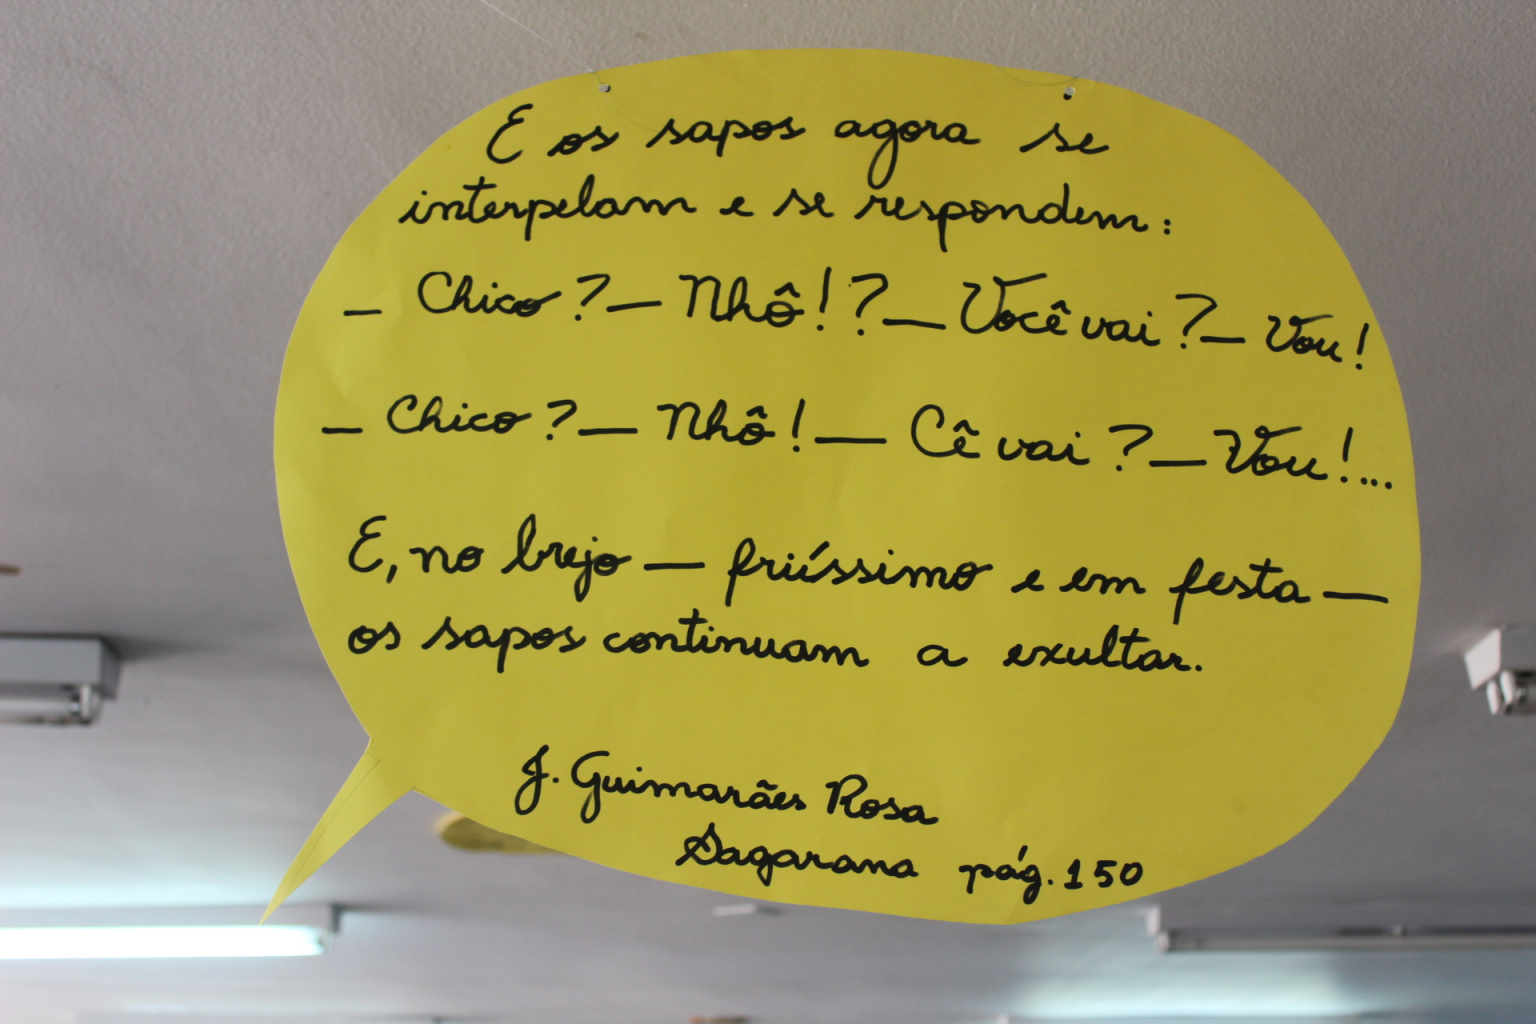 E os sapos agora se
interpelam e se respondem:
— Chico? — Nhô!? — Você vai? — Vou!
— Chico? — Nhô! — Cê vai? — Vou!...
E, no brejo — friíssimo e em festa —
os sapos continuam a exultar.
J. Guimarães Rosa
Sagarana pág. 150